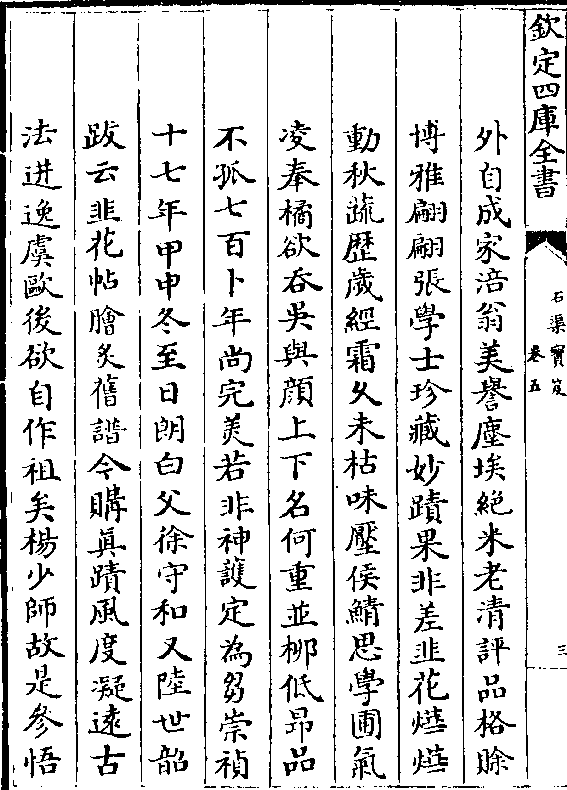 欽定四庫全書
石渠寳笈
卷五
三
外自成家涪翁美譽塵埃絶米老清評品格賒
博雅翩翩張學士珍藏妙蹟果非差韭花㷸㷸
動秋蔬歴歳經霜久未枯味壓侯鯖思學圃氣
凌奉橘欲吞吳與顔上下名何重並栁低昻品
不孤七百卜年尚完美若非神䕶定為芻崇禎
十七年甲申冬至日朗白父徐守和又陸世韶
跋云韭花帖膾炙舊譜今購真蹟風度凝遠古
法进逸虞歐後欲自作祖矣楊少師故是參悟